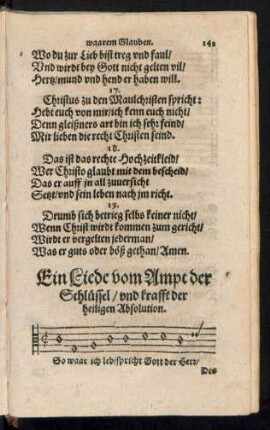 waarem Glauben. 142
Wo du zur Lieb bist treg vnd faul/
Vnd wirdt bey Gott nicht gelten vil/
Hertz/mund vnd hend er haben will.
17.
Christus zu den Maulchristen spricht:
Hebt euch von mir/ich kenn euch nicht/
Denn gleißners art bin ich sehr feind/
Mir lieben die recht Christen seind.
18.
Das ist das rechte Hochzeitkleid/
Wer Christo glaubt mit dem bescheid/
Das er auff in all zuuersicht
Setzt/vnd sein leben nach jm richt.
19.
Drumb sich betrieg selbs keiner nicht/
Wenn Christ wirdt kommen zum gericht/
Wirdt er vergelten jederman/
Was er guts oder böß gethan/Amen.
Ein Liede vom Ampt der
Schlüssel/vnd krafft der
heiligen Absolution.
So waar ich leb/spricht Gott der Herr/
Des